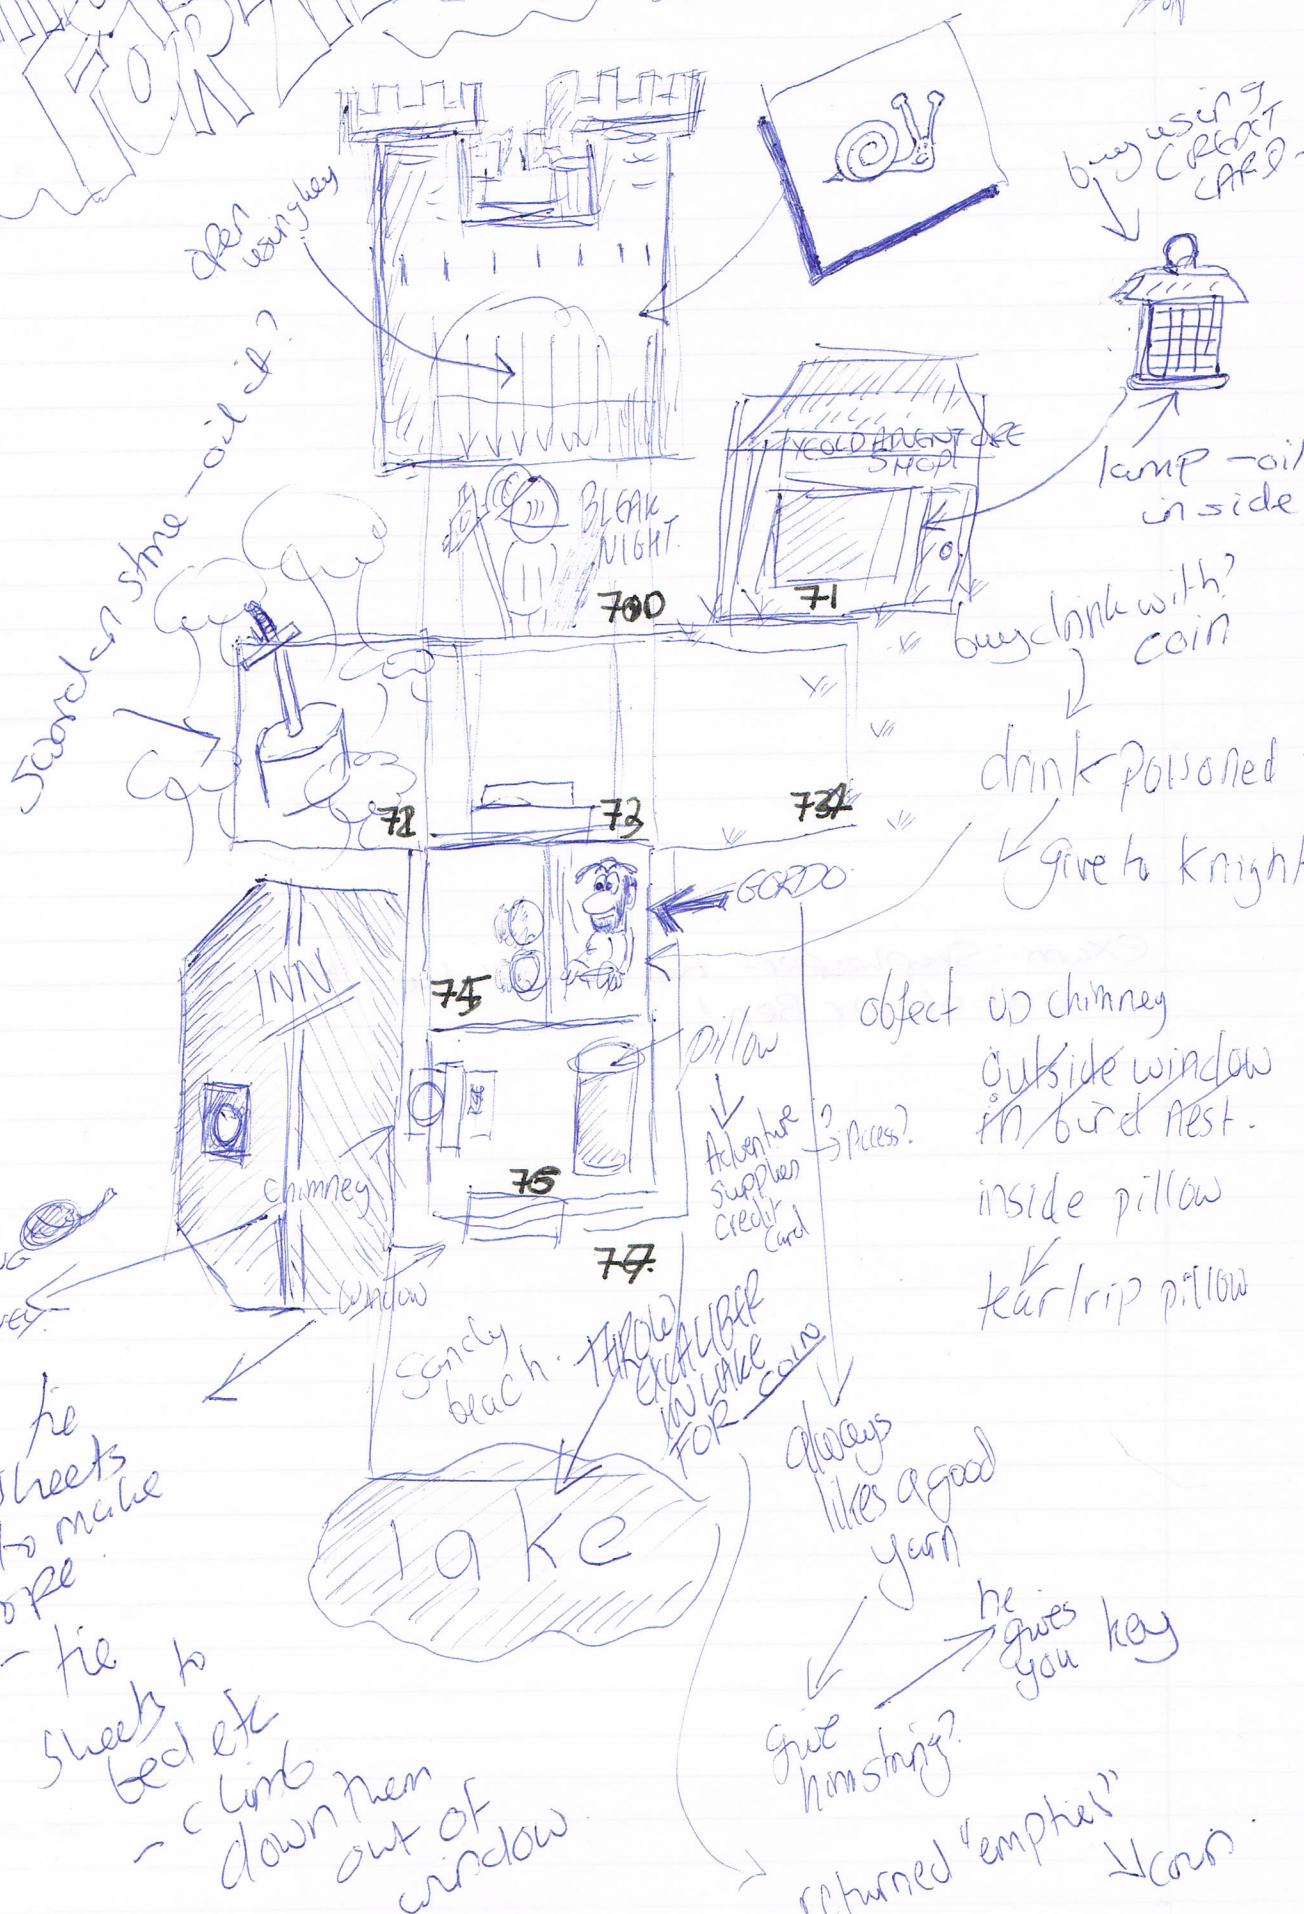 FOR
open
using key
buy using
CREDIT
CARD
YE OLD ADVENTURE
SHOP
lamp - oil
inside
Sword in stone - oil it?
BLEAK
NIGHT.
700
71
buy drink with?
coin
drink poisoned
give to knight
GORDO
INN
75
pillow
object up chimney
outside window
in bird nest.
inside pillow
tear/rip pillow
Adventure
supplies
credit
card
? Access?
chimney
window
Sandy
beach.
THROW
EXCALIBER
IN LAKE
FOR COIN
lake
tie
sheets
to make
rope.
- tie
sheets to
bed etc
- climb
down them
out of
window
always
likes a good
yarn
give
him string?
he
gives
you key
returned "empties"
coin.